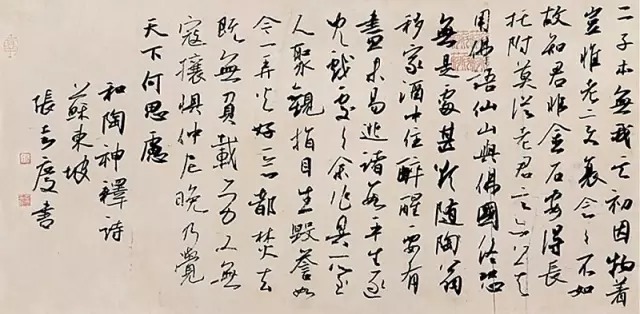 二子本無我其初因物着
豈惟老變衰念念不如
故知君非金石安得長
托附莫從老君言亦莫
用佛語仙山與佛國終恐
無是處甚欲隨陶翁
移家酒中住醉醒要有
盡未易逃諸數平生逐
兒戲處處余作具所至
人聚觀指目生毀譽如
今一弄火好惡都焚去
既無負載勞又無
寇攘懼仲尼晚乃覺
天下何思慮
和陶神釋詩
蘇東坡
張 度書